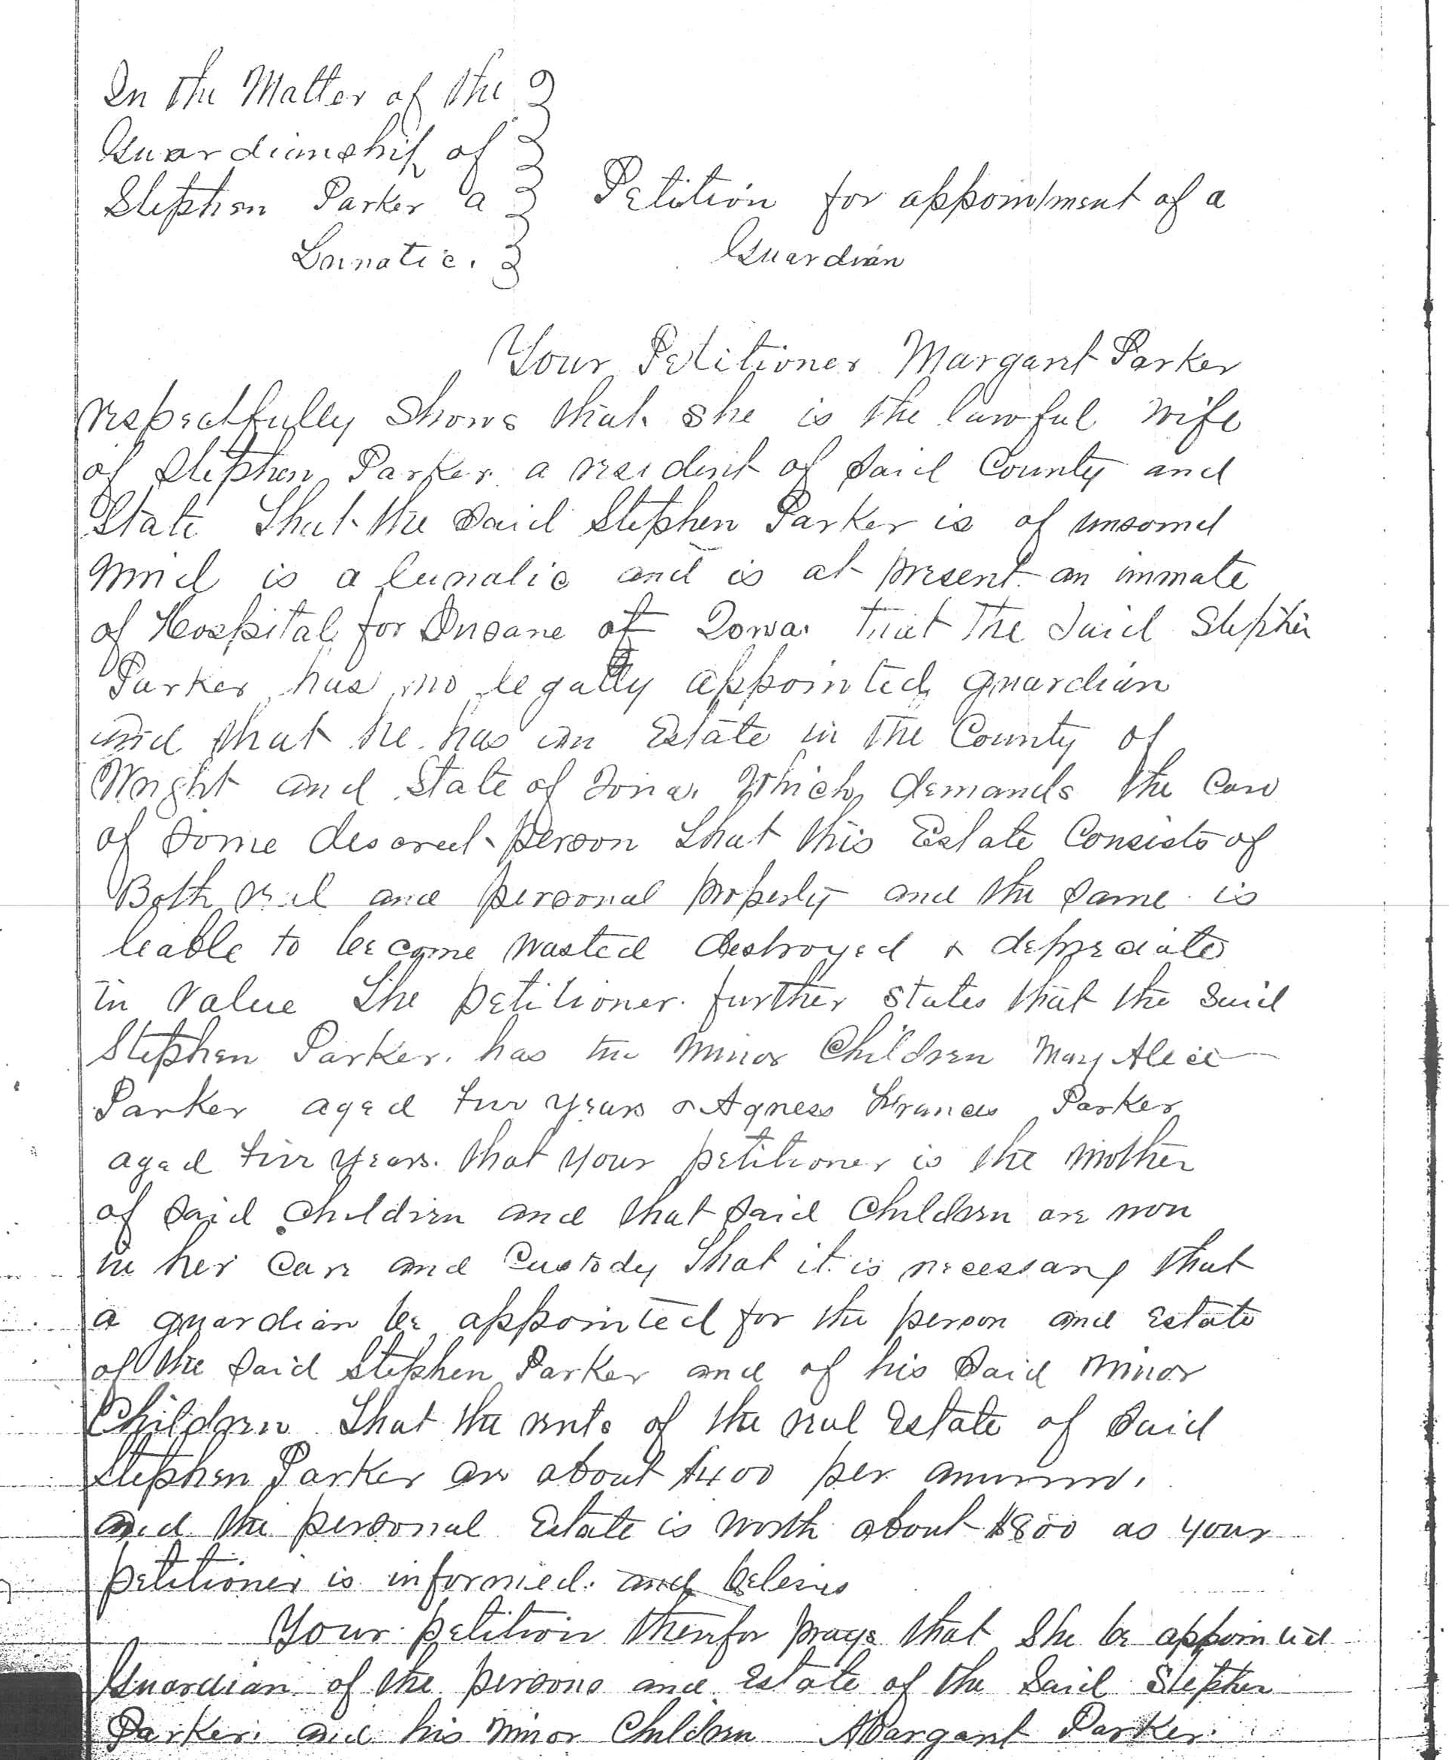 In the Matter of the
Guardianship of
Stephen Parker a
Lunatic.
Petition for appointment of a
Guardian
Your Petitioner Margaret Parker
respectfully shows that she is the lawful wife
of Stephen Parker a resident of said County and
State That the said Stephen Parker is of unsound
mind is a lunatic and is at present an inmate
of Hospital for Insane of Iowa. that the said Stephen
Parker has no legally appointed guardian
and that he has an Estate in the County of
Wright and State of Iowa. Which demands the care
of some descreet person That this Estate Consists of
Both real and personal property and the same is
leable to become wasted destroyed & depreciate
in Value The petitioner further states that the said
Stephen Parker. has minor Children May Alice
Parker aged years & Agness Frances Parker
aged years. that your petitioner is the mother
of said children and that said Children are now
in her care and Custody That it is necessary that
a guardian be appointed for the person and Estate
of the said Stephen Parker and of his said minor
Children That the rents of the real Estate of said
Stephen Parker are about $400 per annum.
and the personal Estate is worth about $800 as your
petitioner is informed. and beleives
Your petition therefor prays that she be appointed
Guardian of the persons and Estate of the said Stephen
Parker. and his minor Children Margaret Parker.